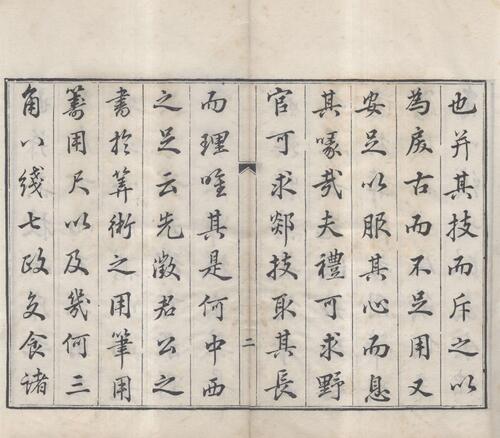 也并其技而斥之以
為戾古而不足用又
安足以服其心而息
其喙哉夫禮可求野
官可求郯技取其長
二
而理唯其是何中西
之足云先徵君公之
書於筭術之用筆用
籌用尺以及幾何三
角八綫七政交食诸